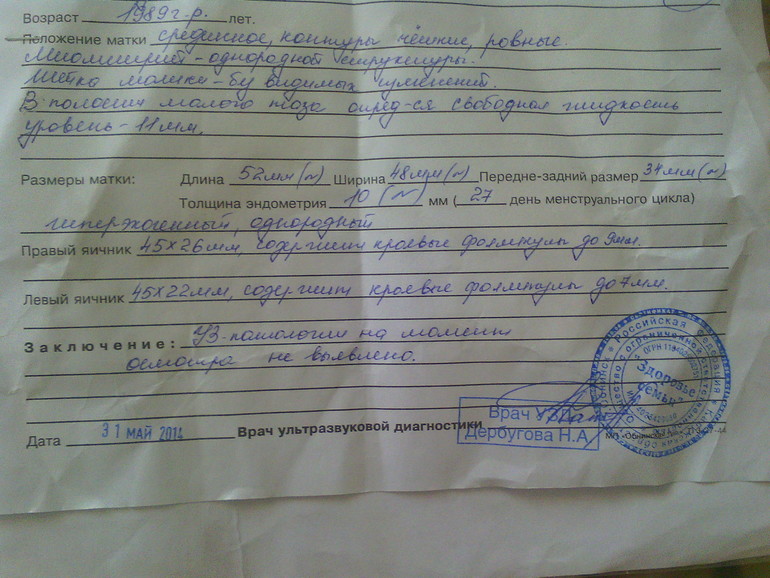 Возраст 1989 г.р. лет.
Положение матки срединное, контуры чёткие, ровные.
Миометрий - однородной структуры.
Шейка матки - б/у видимых изменений.
В полости малого таза опред-ся свободная жидкость
уровень - 11 мм.
Размеры матки: Длина 52мм (N) Ширина 48мм (N) Передне-задний размер 34мм (N)
Толщина эндометрия 10 (N) мм ( 27 день менструального цикла)
гиперэхогенный, однородный
Правый яичник 45х26мм, содержит краевые фолликулы до 9мм.
Левый яичник 45х22мм, содержит краевые фолликулы до 7мм.
Заключение: УЗ-патологии на момент
осмотра не выявлено.
Дата 31 МАЙ 2014 Врач ультразвуковой диагностики
Врач УЗД
Дербугова Н.А.
Российская Федерация
Общество с ограниченной ответственностью
ОГРН
"Здоровье
семьи"